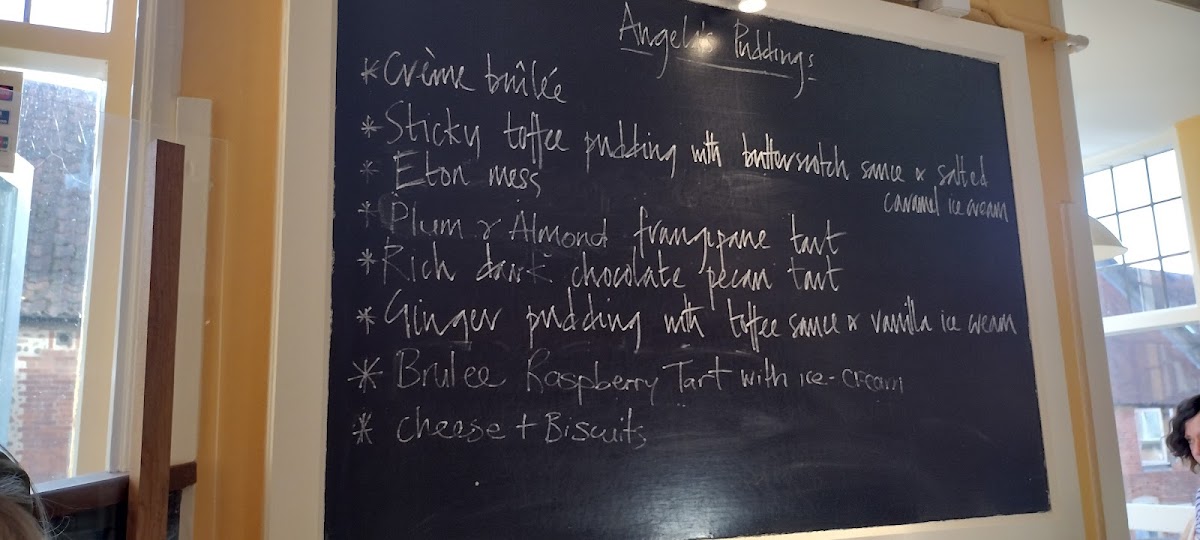 Angela's Puddings
* Crème brûlée
* Sticky toffee pudding with butterscotch sauce & salted
caramel ice cream
* Eton mess
* Plum & Almond frangipane tart
* Rich dark chocolate pecan tart
* Ginger pudding with toffee sauce & vanilla ice cream
* Brulee Raspberry Tart with ice-cream
* cheese + Biscuits